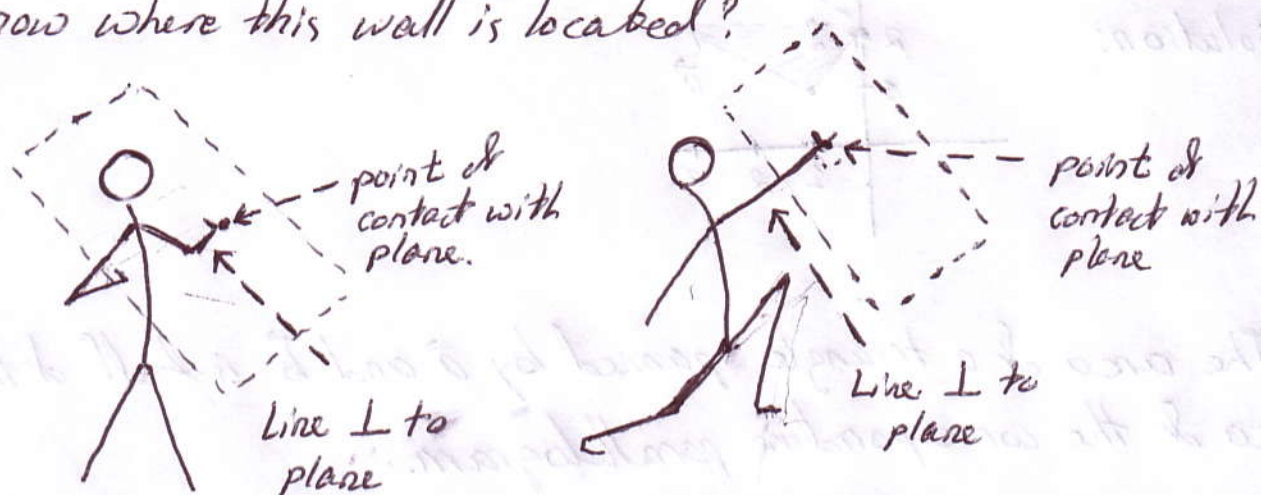 now where this wall is located?
point of
contact with
plane.
Line ⊥ to
plane
point of
contact with
plane
Line ⊥ to
plane